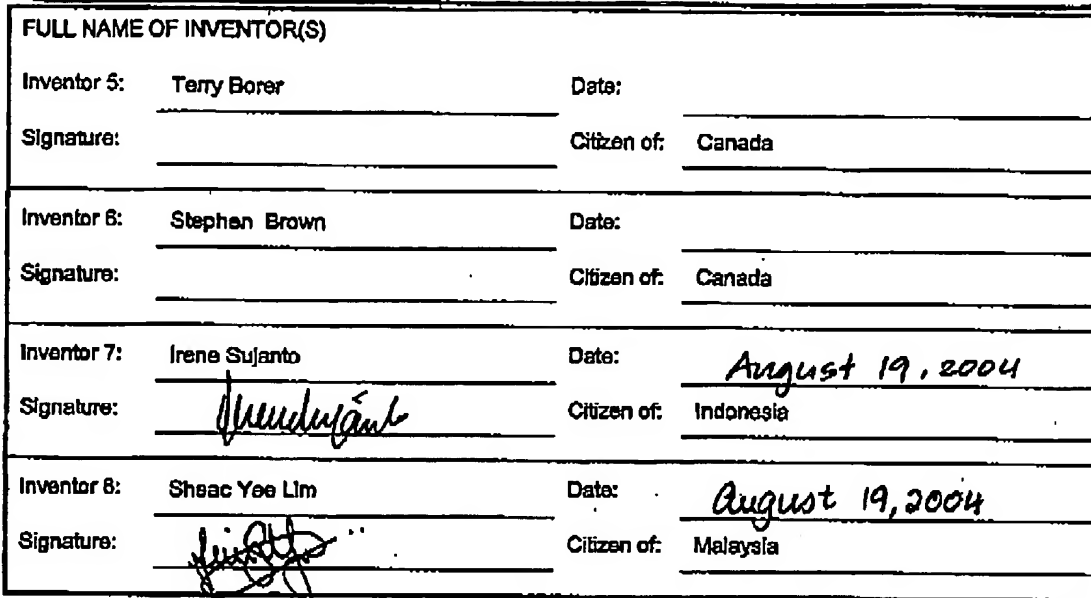 FULL NAME OF INVENTOR(S)
Inventor 5: Terry Borer Date:
Signature: Citizen of: Canada
Inventor 6: Stephen Brown Date:
Signature: Citizen of: Canada
Inventor 7: Irene Sujanto Date: August 19, 2004
Signature: Citizen of: Indonesia
Inventor 8: Sheac Yee Lim Date: August 19, 2004
Signature: Citizen of: Malaysia